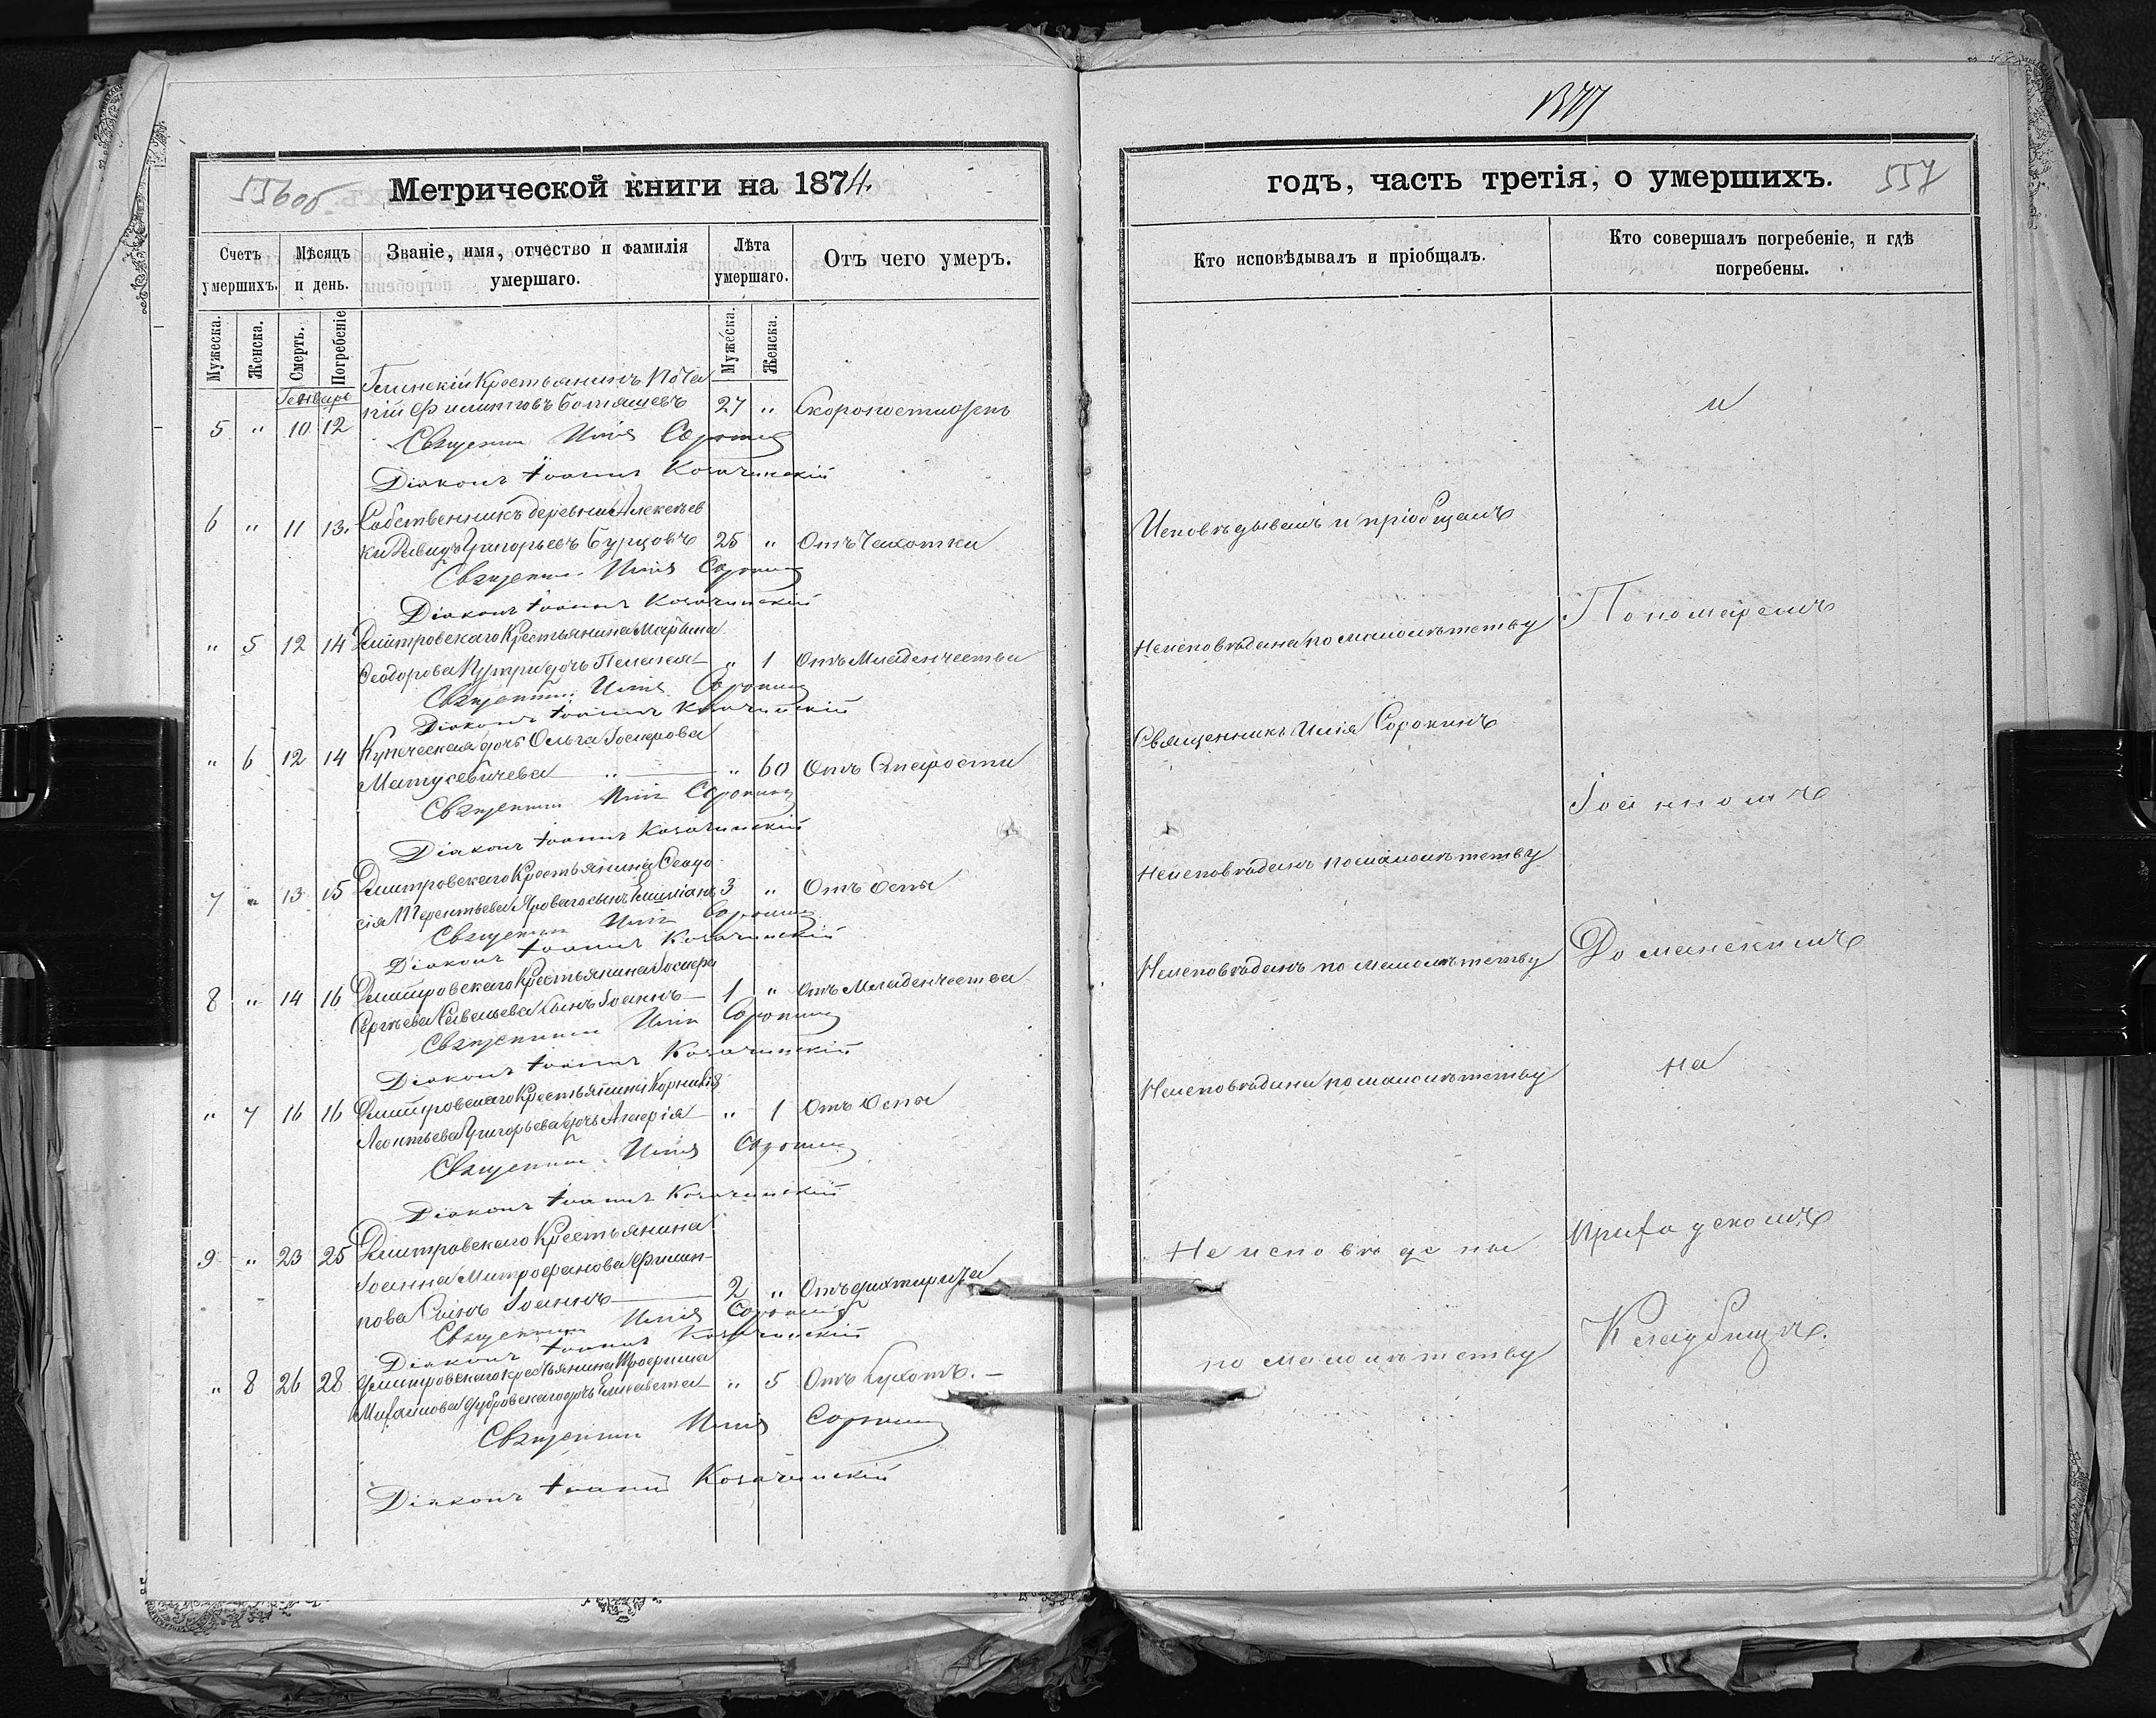 556об
Метрической книги на 1874.
Счетъ умершихъ.
Мѣсяцъ и день.
Званіе, имя, отчество и фамилія умершаго.
Лѣта умершаго.
Отъ чего умеръ.
Мужеска.
Женска.
Смерть.
Погребеніе
Мужеска.
Женска.
Генварь
крестьянинъ
5 " 10 12 Филиповъ 27 " Скоропостижно
Священникъ Илія Сорокинъ
Діаконъ Іоаннъ Козачинскій
6 " 11 13. Собственникъ деревни Алексѣев
ки Давидъ Григорьевъ Бурцовъ 25 " Отъ Чахотки
Священникъ Илія Сорокинъ
Діаконъ Іоаннъ Козачинскій
" 5 12 14 Дмитровскаго Крестьянина
Ѳеодорова дочь Пелагея " 1 Отъ Младенчества
Священникъ Илія Сорокинъ
Діаконъ Іоаннъ Козачинскій
" 6 12 14 Купеческая дочь Ольга Іосифова
Матусевичева " " 60 Отъ Старости
Священникъ Илія Сорокинъ
Діаконъ Іоаннъ Козачинскій
7 " 13 15 Дмитровскаго Крестьянина Ѳеодо
сія Терентьева Яроваго сынъ Емиліанъ 3 " Отъ Оспы
Священникъ Илія Сорокинъ
Діаконъ Іоаннъ Козачинскій
8 " 14 16 Дмитровскаго Крестьянина Іосифа
Сергѣева Савельева Сынъ Іоаннъ 1 " Отъ Младенчества
Священникъ Илія Сорокинъ
Діаконъ Іоаннъ Козачинскій
" 7 16 16 Дмитровскаго Крестьянина Корнилія
Леонтьева Григорьева дочь " 1 Отъ Оспы
Священникъ Илія Сорокинъ
Діаконъ Іоаннъ Козачинскій
9 " 23 25 Дмитровскаго Крестьянина
Іоанна Митрофанова Филип
пова Сынъ Іоаннъ 2 " Отъ
Священникъ Илія Сорокинъ
Діаконъ Іоаннъ Козачинскій
" 8 26 28 Дмитровскаго крестьянина Трофима
Михайлова Дубровскаго дочь Елисавета " 5 Отъ Сухотъ.
Священникъ Илія Сорокинъ
Діаконъ Іоаннъ Козачинскій
годъ, часть третія, о умершихъ.
557
Кто исповѣдывалъ и пріобщалъ.
Кто совершалъ погребеніе, и гдѣ погребены.
и
Исповѣдывалъ и пріобщалъ
Неисповѣдана по малолѣтству
Пономаремъ
Священникъ Илія Сорокинъ
Іоанномъ
Неисповѣданъ по малолѣтству
Неисповѣданъ по малолѣтству
Доманскимъ
Неисповѣдана по малолѣтству
на
Не исповѣданы
Приходскомъ
по малолѣтству
Кладбищѣ.